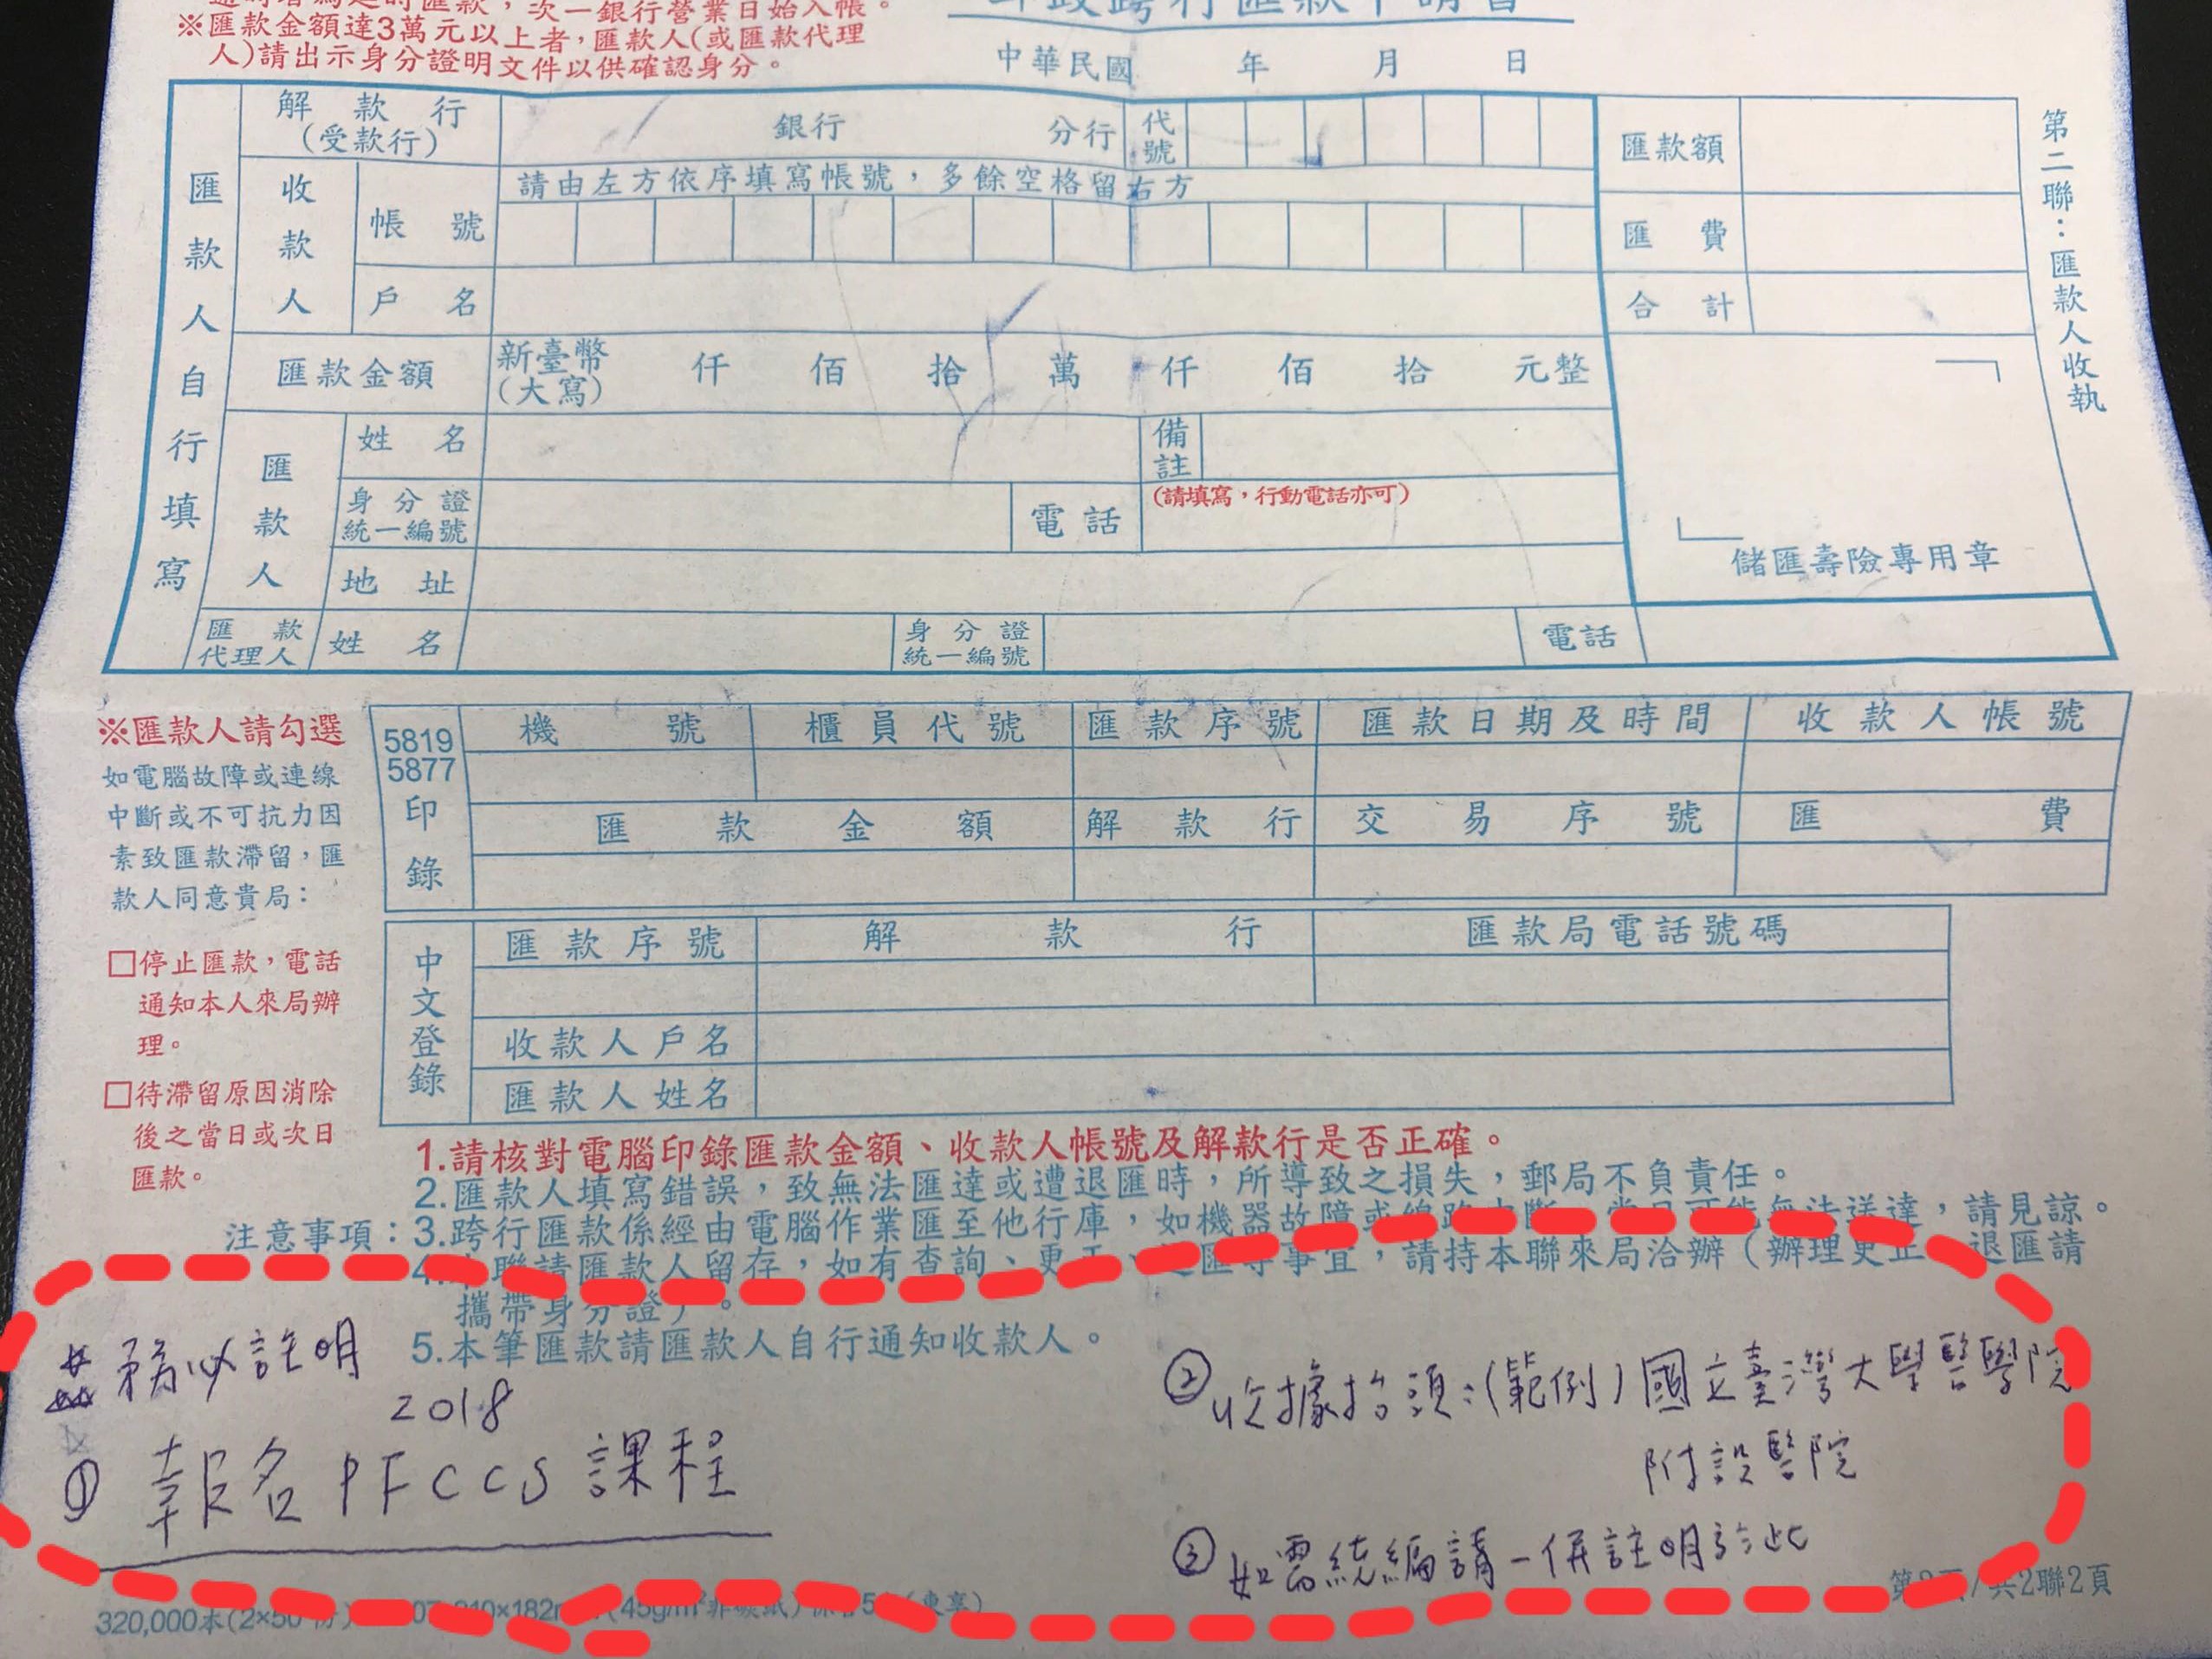 ※匯款金額達3萬元以上者，匯款人(或匯款代理
人)請出示身分證明文件以供確認身分。
中華民國 年 月 日
第二聯：匯款人收執
匯款人自行填寫
解款行
(受款行)
銀行 分行 代號
匯款額
收款人
帳號
請由左方依序填寫帳號，多餘空格留右方
匯費
戶名
合計
匯款金額
新臺幣
(大寫)
仟 佰 拾 萬 仟 佰 拾 元整
匯款人
姓名
備註
身分證
統一編號
電話
(請填寫，行動電話亦可)
地址
儲匯壽險專用章
匯款
代理人
姓名
身分證
統一編號
電話
※匯款人請勾選
如電腦故障或連線
中斷或不可抗力因
素致匯款滯留，匯
款人同意貴局：
□停止匯款，電話
通知本人來局辦
理。
□待滯留原因消除
後之當日或次日
匯款。
5819
5877
印錄
機號 櫃員代號 匯款序號 匯款日期及時間 收款人帳號
匯款金額 解款行 交易序號 匯費
中文登錄
匯款序號 解款行 匯款局電話號碼
收款人戶名
匯款人姓名
注意事項：
1.請核對電腦印錄匯款金額、收款人帳號及解款行是否正確。
2.匯款人填寫錯誤，致無法匯達或遭退匯時，所導致之損失，郵局不負責任。
3.跨行匯款係經由電腦作業匯至他行庫，如機器故障或線路中斷，當日可能無法送達，請見諒。
4.本聯請匯款人留存，如有查詢、更正、退匯等事宜，請持本聯來局洽辦（辦理更正、退匯請
攜帶身分證）。
5.本筆匯款請匯款人自行通知收款人。
務必註明
2018
① 報名PFCCS課程
② 收據抬頭：(範例)國立臺灣大學醫學院
附設醫院
③ 如需統編請一併註明於此
320,000本
共2聯2頁